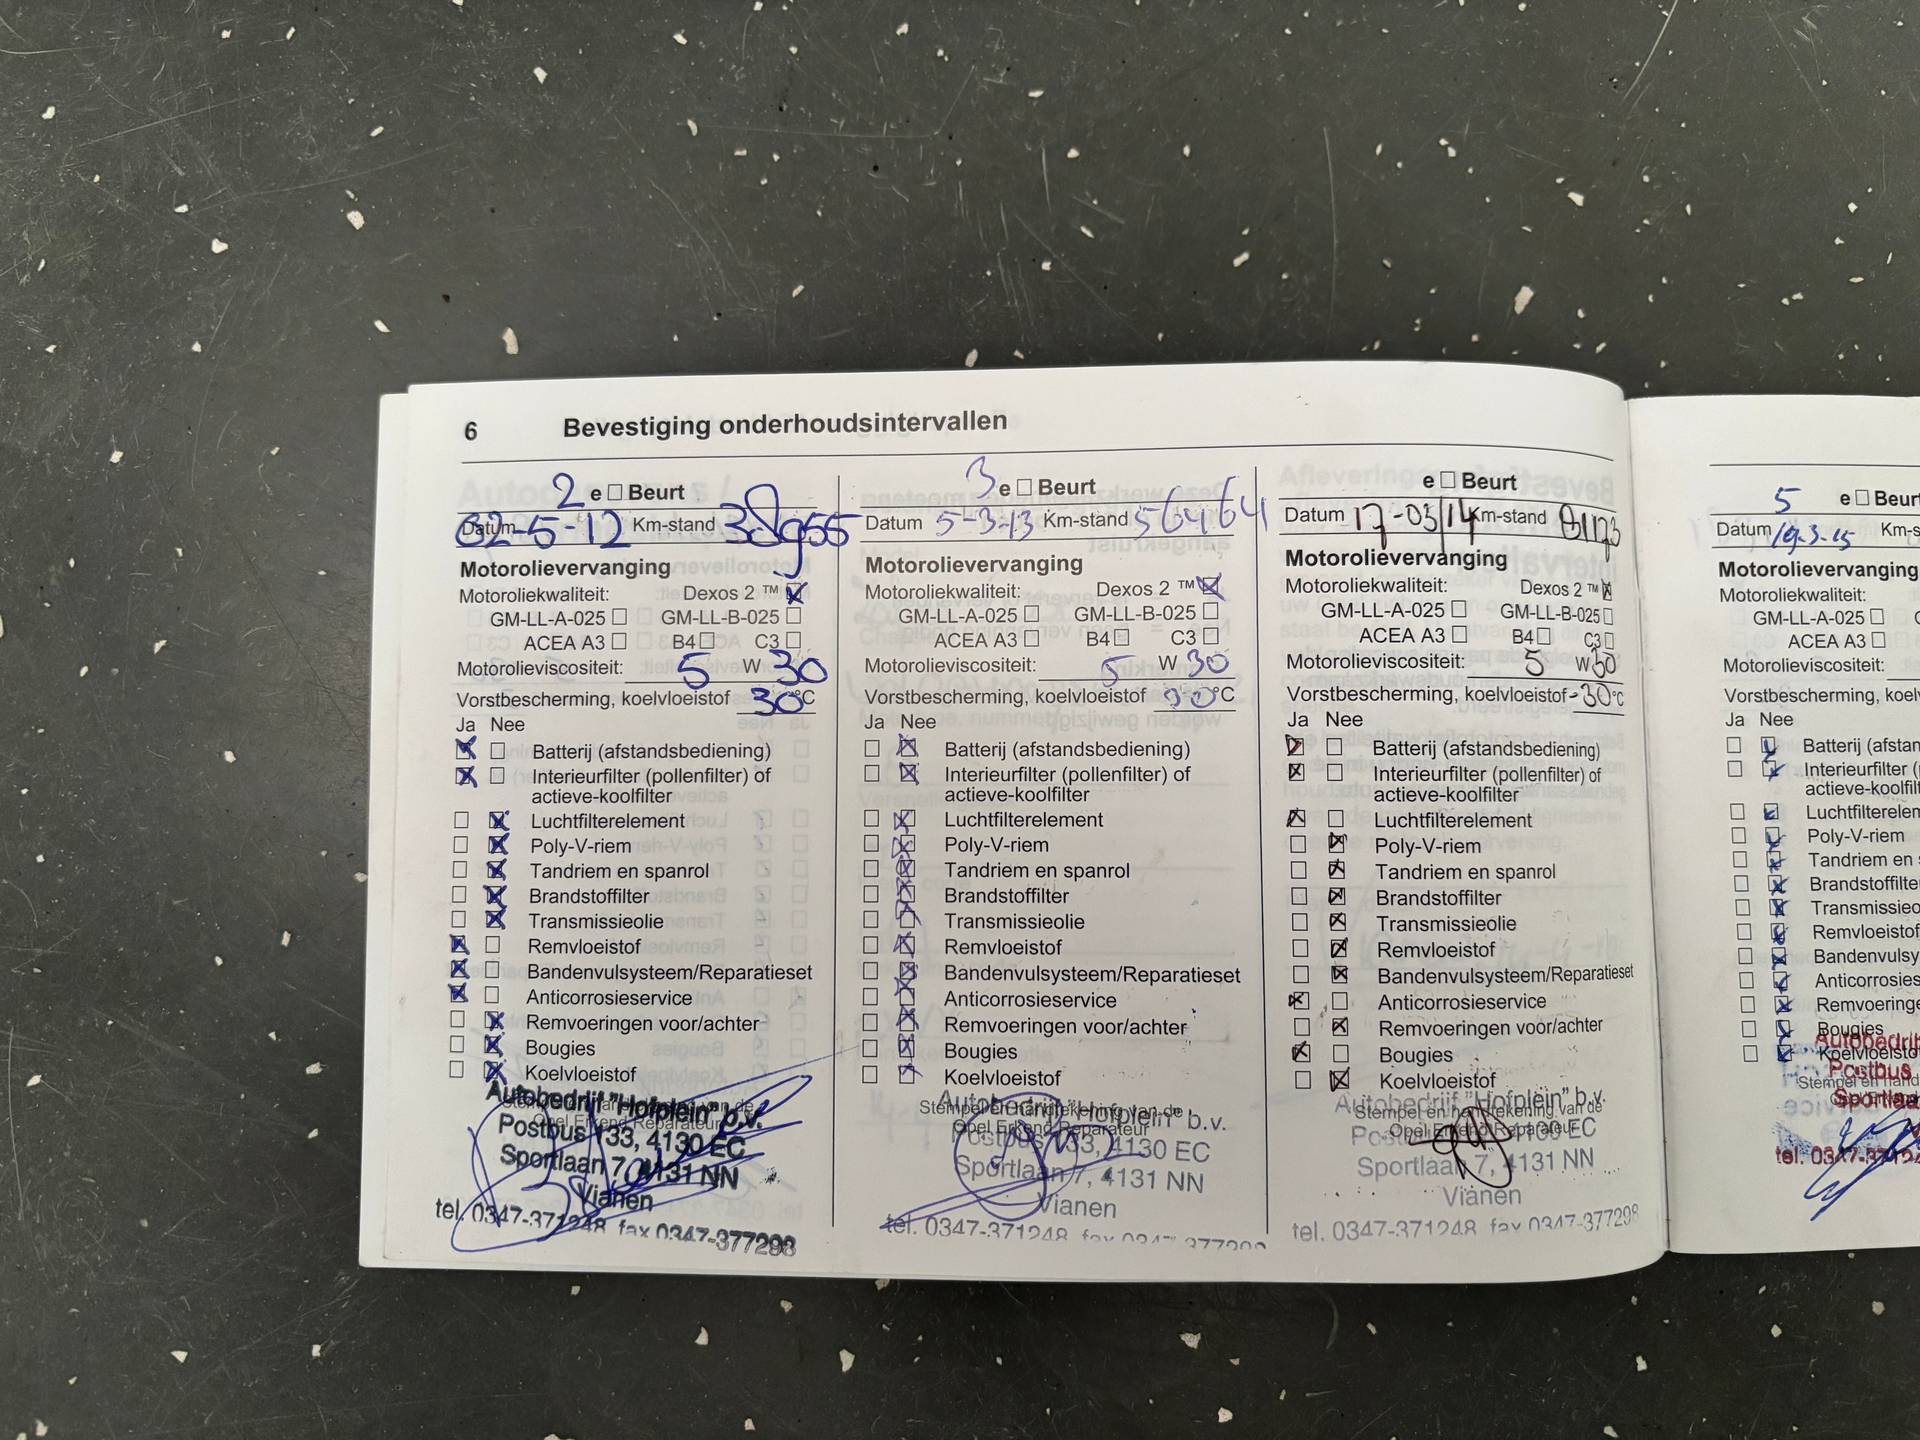 6 Bevestiging onderhoudsintervallen
2 e □ Beurt
Datum 02-5-12 Km-stand 38955
Motorolievervanging
Motoroliekwaliteit: Dexos 2 ™ ☒
GM-LL-A-025 □ GM-LL-B-025 □
ACEA A3 □ B4 □ C3 □
Motorolieviscositeit: 5 W 30
Vorstbescherming, koelvloeistof 30°C
Ja Nee
☒ □ Batterij (afstandsbediening)
☒ □ Interieurfilter (pollenfilter) of
actieve-koolfilter
□ ☒ Luchtfilterelement
□ ☒ Poly-V-riem
□ ☒ Tandriem en spanrol
□ ☒ Brandstoffilter
□ ☒ Transmissieolie
☒ □ Remvloeistof
☒ □ Bandenvulsysteem/Reparatieset
☒ □ Anticorrosieservice
□ ☒ Remvoeringen voor/achter
□ ☒ Bougies
□ ☒ Koelvloeistof
Stempel en handtekening van de
Opel Erkend Reparateur
Autobedrijf "Hofplein" b.v.
Postbus 133, 4130 EC
Sportlaan 7, 4131 NN
Vianen
tel. 0347-371248 fax 0347-377298
3 e □ Beurt
Datum 5-3-13 Km-stand 56464
Motorolievervanging
Motoroliekwaliteit: Dexos 2 ™ ☒
GM-LL-A-025 □ GM-LL-B-025 □
ACEA A3 □ B4 □ C3 □
Motorolieviscositeit: 5 W 30
Vorstbescherming, koelvloeistof °C
Ja Nee
□ ☒ Batterij (afstandsbediening)
□ ☒ Interieurfilter (pollenfilter) of
actieve-koolfilter
□ ☒ Luchtfilterelement
□ ☒ Poly-V-riem
□ ☒ Tandriem en spanrol
□ ☒ Brandstoffilter
□ ☒ Transmissieolie
□ ☒ Remvloeistof
□ ☒ Bandenvulsysteem/Reparatieset
□ ☒ Anticorrosieservice
□ ☒ Remvoeringen voor/achter
□ ☒ Bougies
□ ☒ Koelvloeistof
Stempel en handtekening van de
Opel Erkend Reparateur
Autobedrijf "Hofplein" b.v.
Postbus 133, 4130 EC
Sportlaan 7, 4131 NN
Vianen
tel. 0347-371248 fax 0347-377298
e □ Beurt
Datum 17-03/14 Km-stand 81173
Motorolievervanging
Motoroliekwaliteit: Dexos 2 ™ ☒
GM-LL-A-025 □ GM-LL-B-025 □
ACEA A3 □ B4 □ C3 □
Motorolieviscositeit: 5 W 30
Vorstbescherming, koelvloeistof -30°C
Ja Nee
☒ □ Batterij (afstandsbediening)
☒ □ Interieurfilter (pollenfilter) of
actieve-koolfilter
☒ □ Luchtfilterelement
□ ☒ Poly-V-riem
□ ☒ Tandriem en spanrol
□ ☒ Brandstoffilter
□ ☒ Transmissieolie
□ ☒ Remvloeistof
□ ☒ Bandenvulsysteem/Reparatieset
☒ □ Anticorrosieservice
□ ☒ Remvoeringen voor/achter
☒ □ Bougies
□ ☒ Koelvloeistof
Stempel en handtekening van de
Opel Erkend Reparateur
Autobedrijf "Hofplein" b.v.
Postbus 4130 EC
Sportlaan 7, 4131 NN
Vianen
tel. 0347-371248 fax 0347-377298
5 e □ Beurt
Datum 19-3-15 Km-s
Motorolievervanging
Motoroliekwaliteit:
GM-LL-A-025 □
ACEA A3 □
Motorolieviscositeit:
Vorstbescherming, koelvloei
Ja Nee
□ ☒ Batterij (afstan
□ ☒ Interieurfilter (
actieve-koolfilt
□ ☒ Luchtfiltereleme
□ ☒ Poly-V-riem
□ ☒ Tandriem en s
□ ☒ Brandstoffilte
□ ☒ Transmissieo
□ ☒ Remvloeistof
□ ☒ Bandenvulsy
□ ☒ Anticorrosies
□ ☒ Remvoeringe
□ ☒ Bougies
□ ☒ Koelvloeisto
Stempel en hand
Autobedrij
Postbus
Sportlaa
tel. 0347-